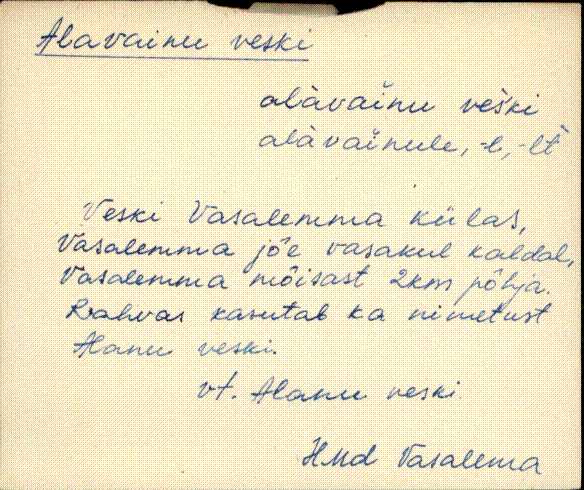 Alavainu veski
alàvaĭnu veški
alàvaĭnule, -l, -lt
Veski Vasalemma külas,
Vasalemma jõe vasakul kaldal,
Vasalemma mõisast 2km põhja.
Rahvas kasutab ka nimetust
Alanu veski.
vt. Alanu veski
HMd Vasalema